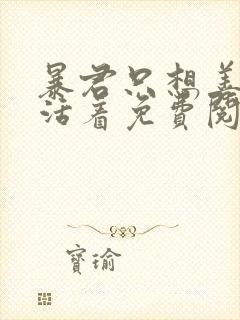 暴君只想养
活着免费阅
寶瑜